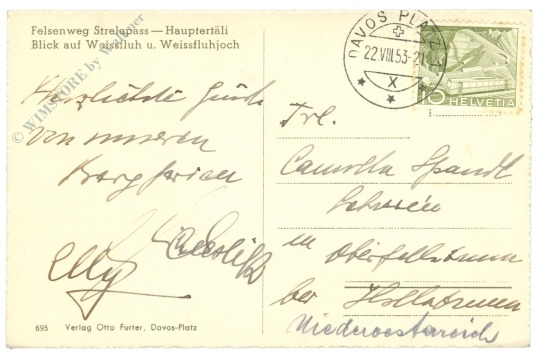 Felsenweg Strelapass—Hauptertäli
Blick auf Weissfluh u. Weissfluhjoch
DAVOS PLATZ
22.VIII.53-21
X
10 HELVETIA
© WIMSTORE by Wallner
Herzlichste Grüße
von unseren
Bergferien
Elly
Frl.
Camilla Spandl
in Oberfellabrunn
bei Hollabrunn
Niederoesterreich
695 Verlag Otto Furter, Davos-Platz